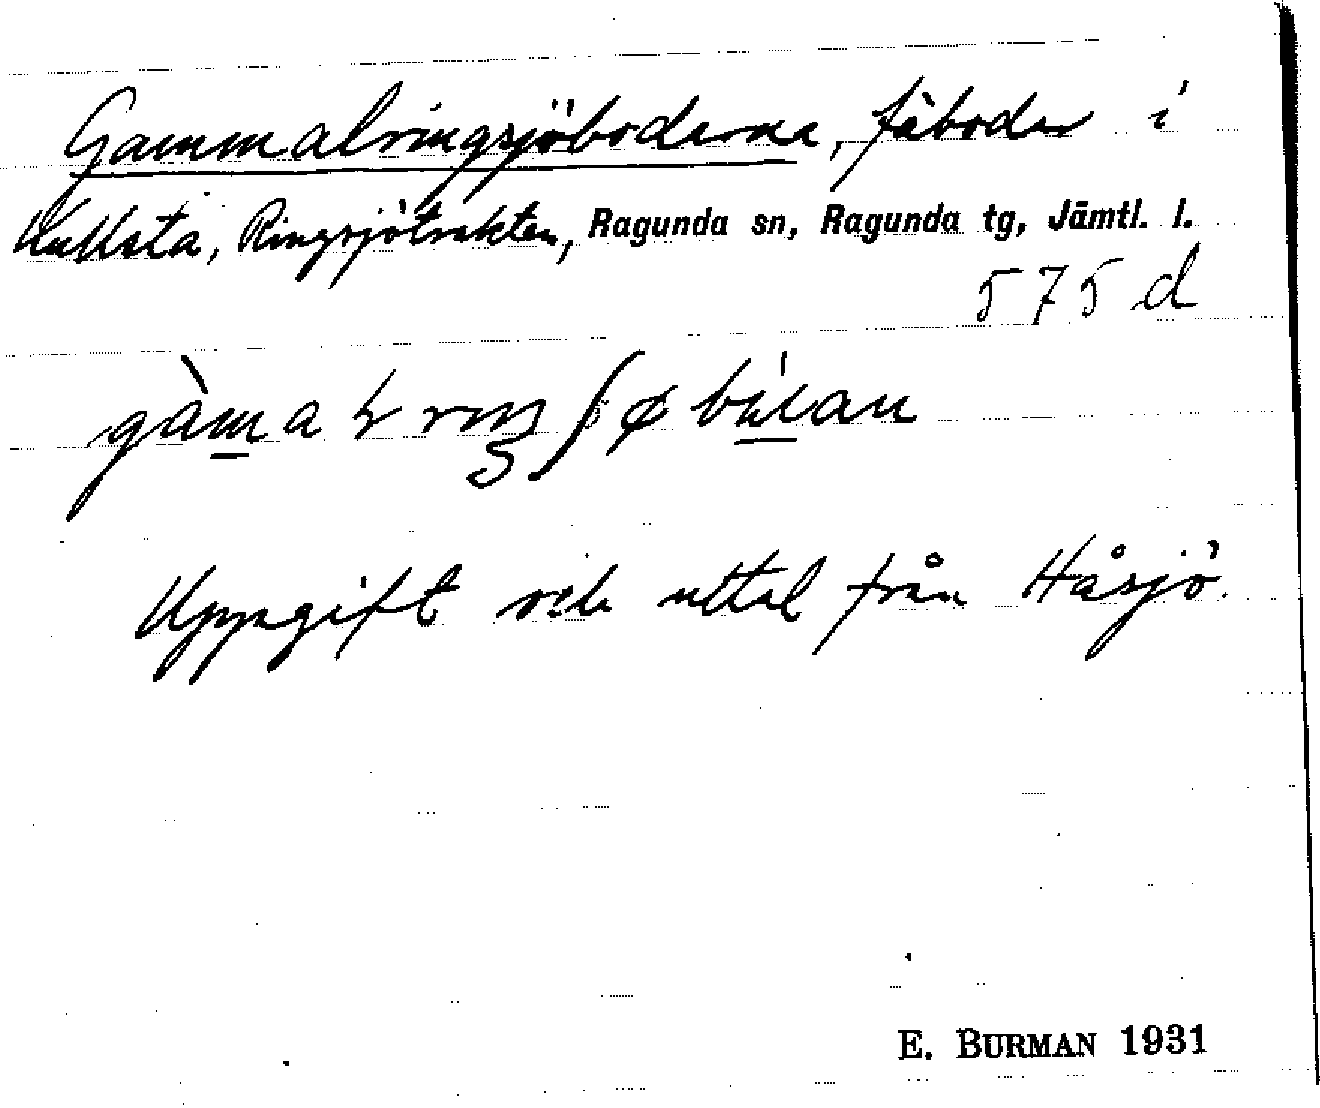 Gammalringsjöboderna, fäbodar i
Kullsta, Ringsjötrakten, Ragunda sn, Ragunda tg, Jämtl. l.
575 d
Uppgift och uttal från Håsjö.
E. BURMAN 1931